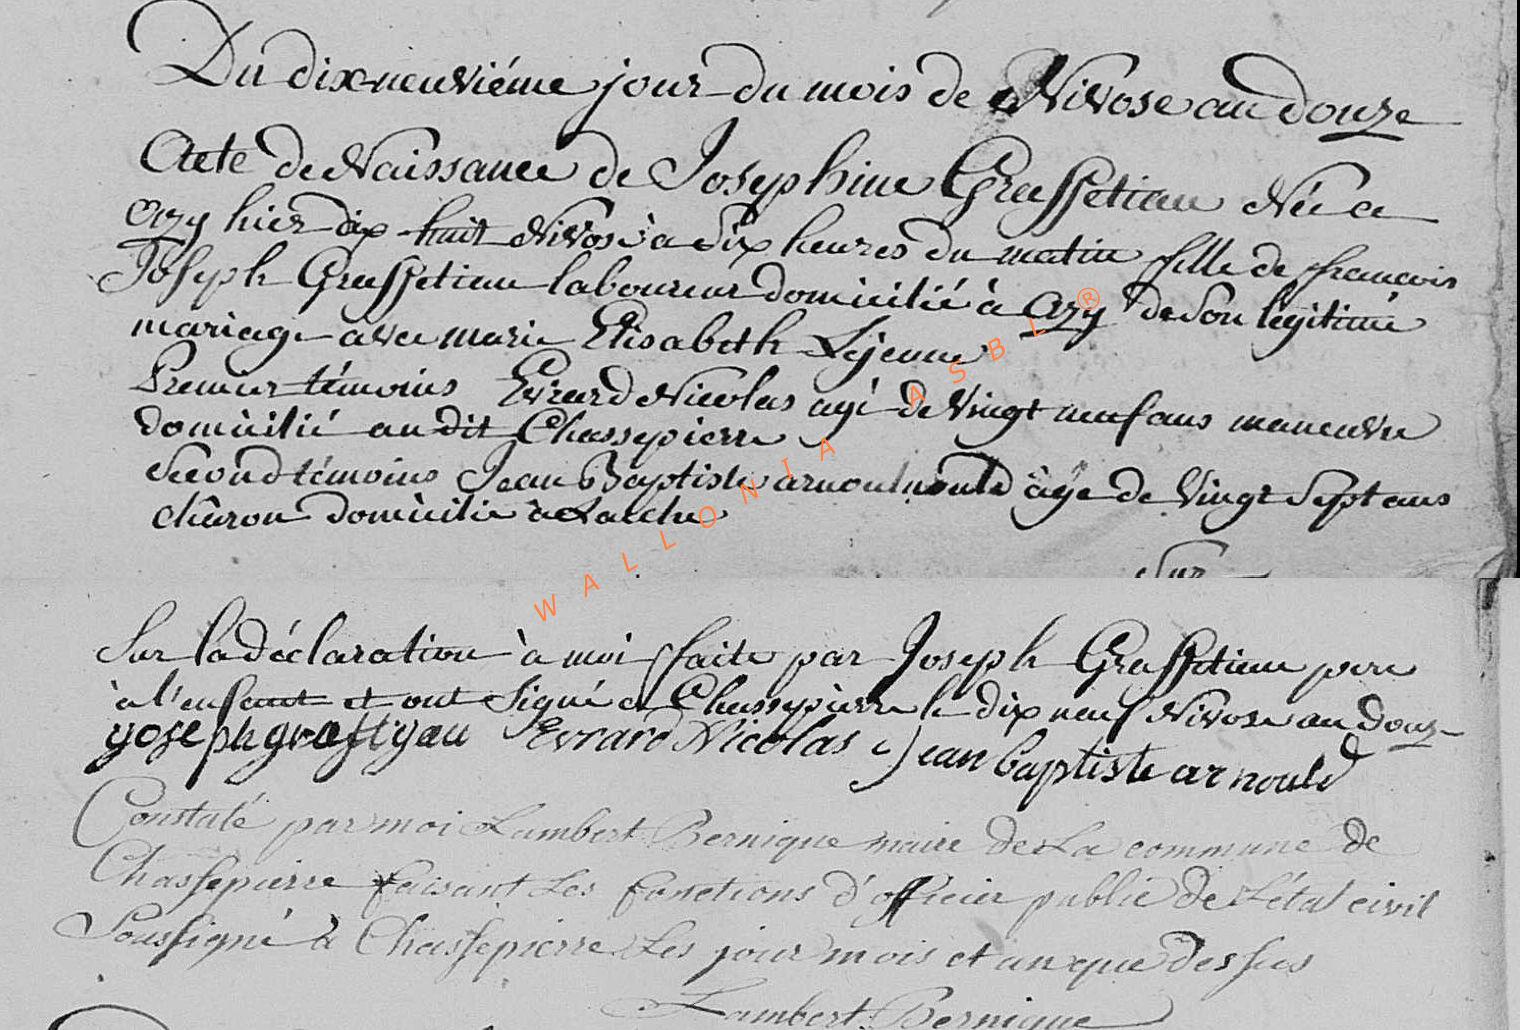 Du dix-neuviéme jour du mois de Nivose an douze
Acte de Naissance de Josephine Graffetiau Née a
Azy hier dix huit Nivose à Six heures du matin fille de françois
Joseph Graffetiau laboureur domicilié à Azy de Son légitime
mariage avec marie Elisabeth Lejeune
Premier témoins Evrard Nicolas agé de Vingt neuf ans maneuvre
domicilié au dit Chassepierre
Second témoins Jean Baptiste arnould âgé de Vingt Sept ans
châron domicilié à Laiche
Sur
Sur la déclaration à moi faite par Joseph Graffetiau pere
à l'enfant et ont Signé a Chassepierre le dix neuf Nivose an douze
yoseph graftyau Evrard Nicolas Jean baptiste arnould
Constaté par moi Lambert Bernique maire de La commune de
Chassepierre faisant Les fonctions d'officier public de L'état civil
Soussigné à Chassepierre Les jour mois et an que dessus
Lambert Bernique
WALLONIA ASBL ®